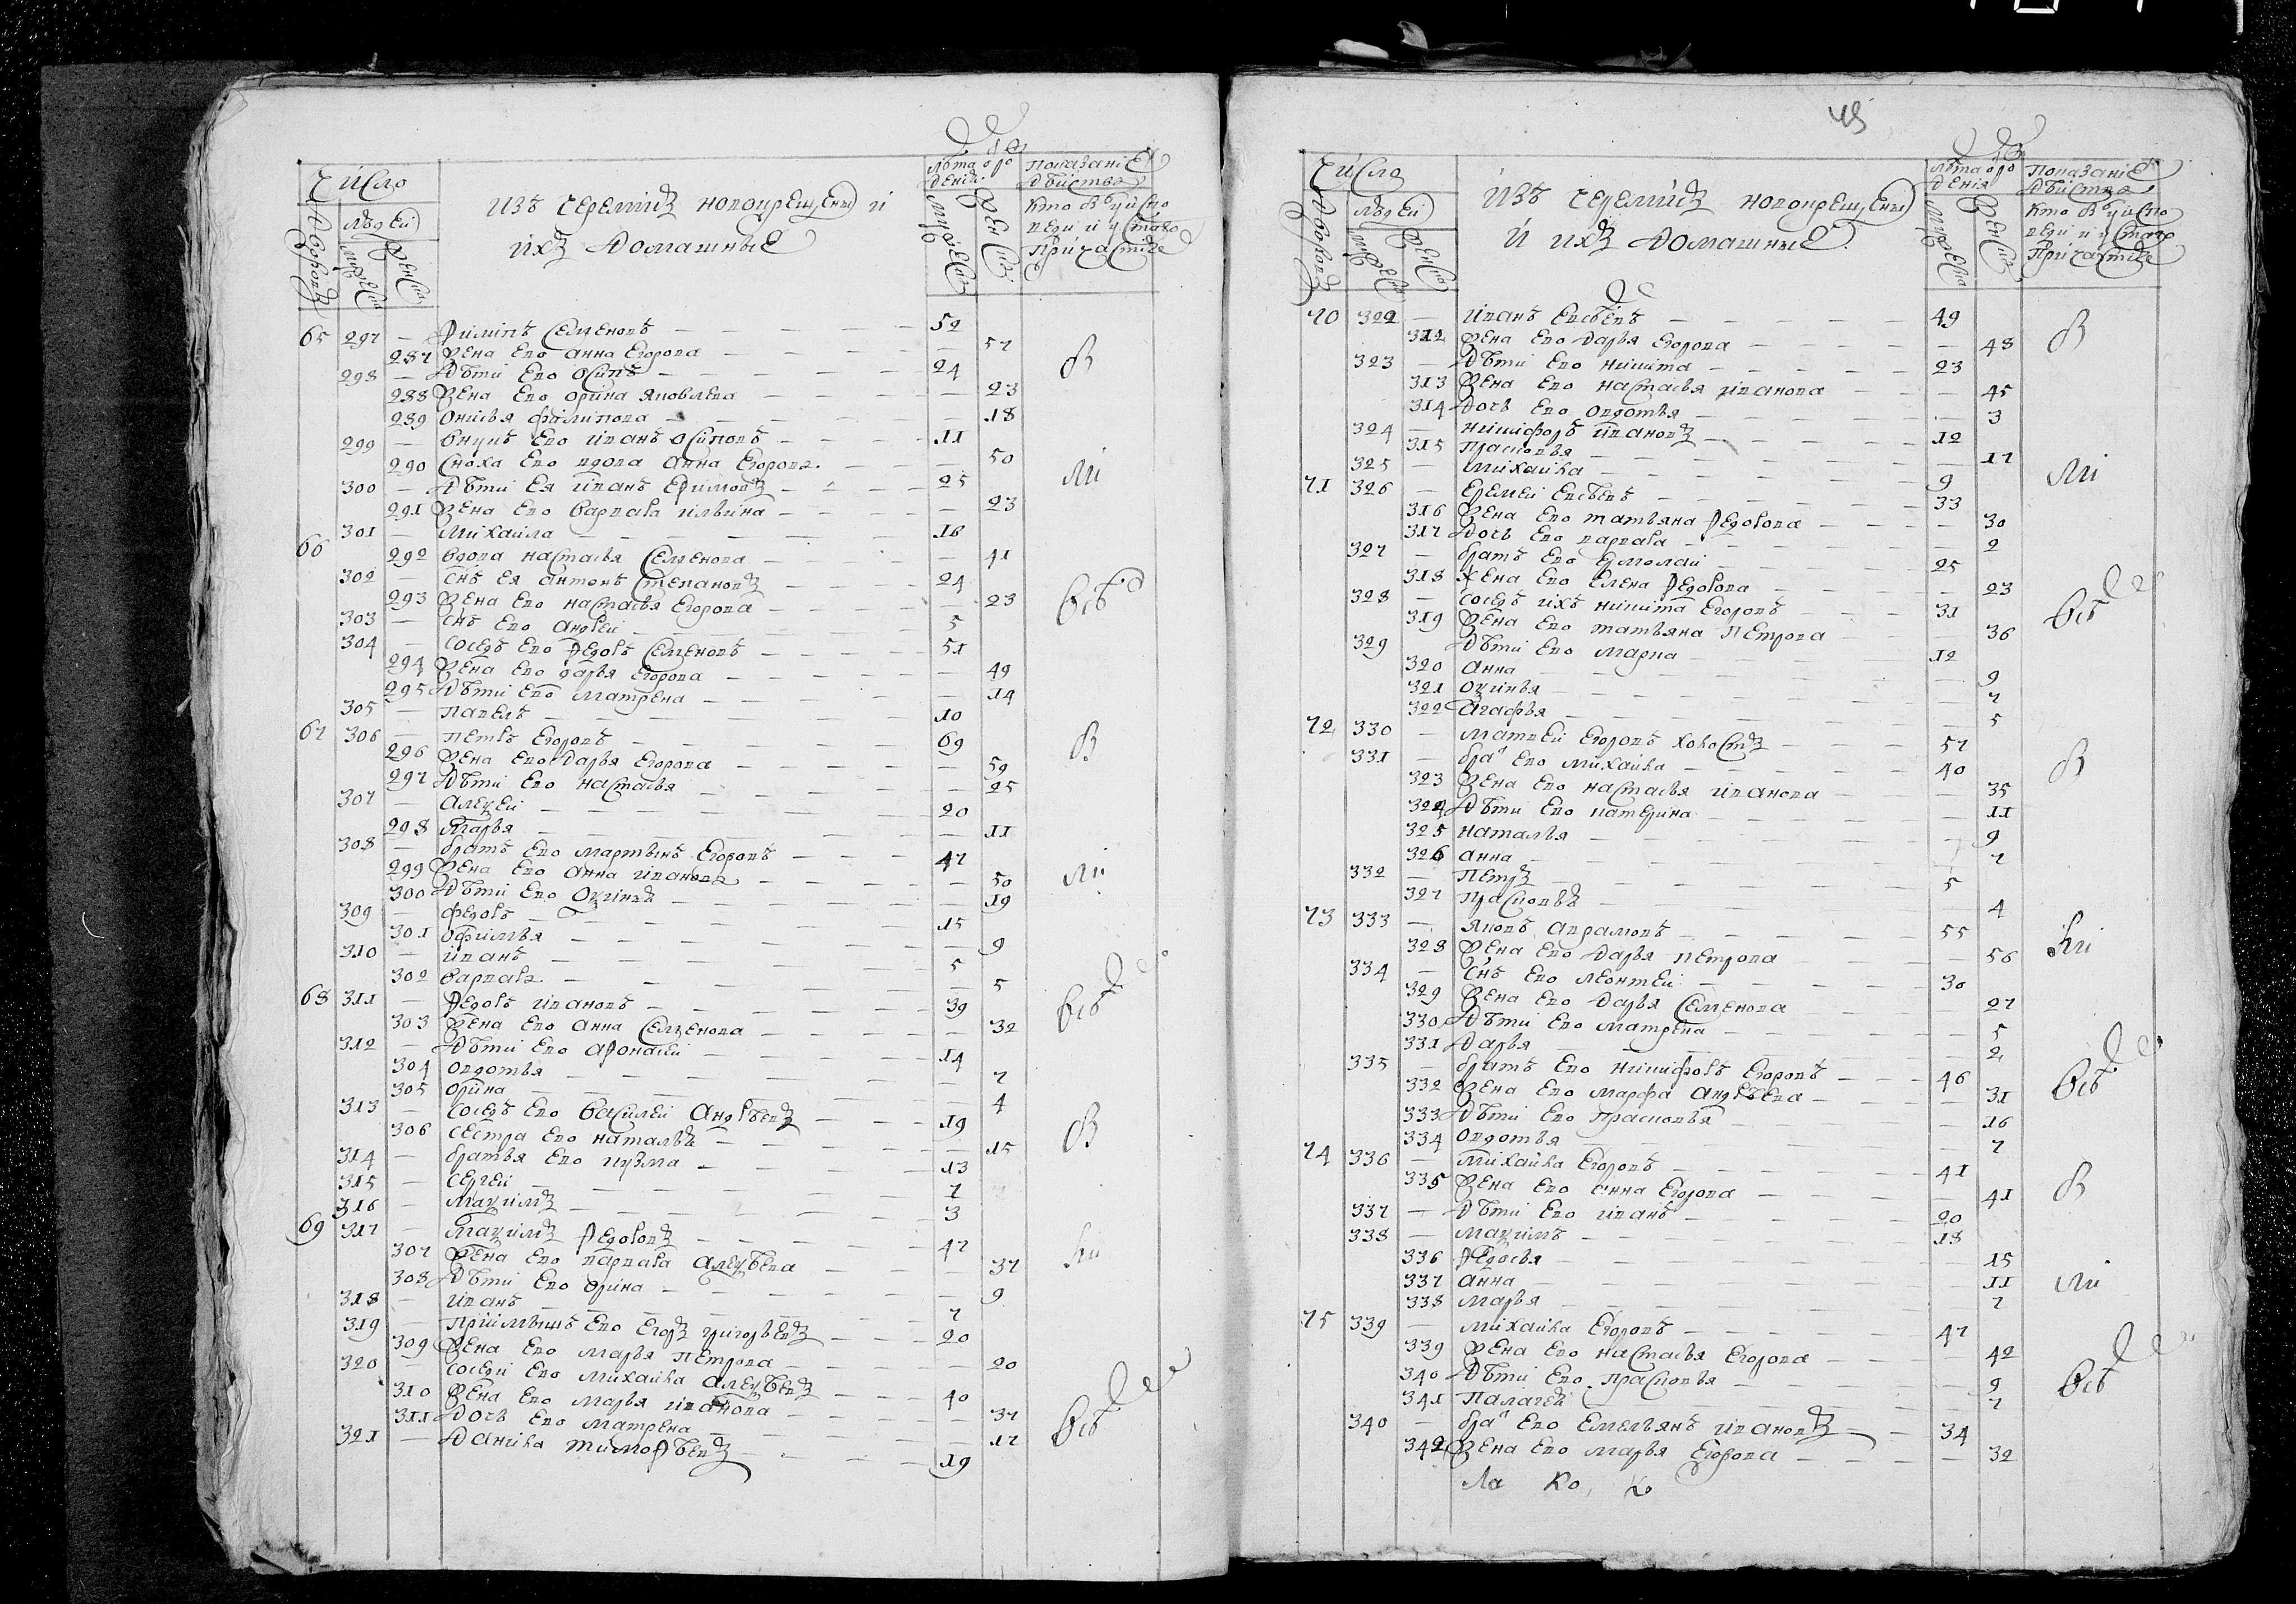 Число
людей
дворовъ
мужеска
женска
изъ черемисъ новокрещены и
ихъ домашные
лѣта от рождения
мужеска
женска
Показание действа
кто былъ у исповеди и у святаго причастия
65 297 — Филипъ Семеновъ — 52
287 жена ево анна Егорова — 57
298 — дѣти ево осипъ — 24
288 жена ево орина яковлева — 23
289 онисья филипова — 18
299 — внукъ ево иванъ осиповъ — 11
290 сноха ево вдова анна Егорова — 50
300 — дѣти ея иванъ Ефимовъ — 25
291 жена ево варвара ильина — 23
301 — михаила — 16
66 292 вдова настасья Семенова — 41
302 — снъ ея антонъ Степановъ — 24
293 жена ево настасья Егорова — 23
303 — снъ ево андрей — 5
304 — соседъ ево федоръ Семеновъ — 51
294 жена ево дарья Егорова — 49
295 дѣти ево матрена — 14
305 — павелъ — 10
67 306 — петръ Егоровъ — 69
296 жена ево дарья Егорова — 59
297 дѣти ево настасья — 25
307 — алеѯей — 20
298 марья — 11
308 — братъ ево мартынъ Егоровъ — 47
299 жена ево анна иванова — 50
300 дѣти ево Оѯинья — 19
309 — федоръ — 15
301 офимья — 9
310 — иванъ — 5
302 варвара — 5
68 311 — федоръ ивановъ — 39
303 жена ево анна Семенова — 32
312 — дѣти ево афонасей — 14
304 овдотья — 7
305 орина — 4
313 — соседъ ево василей андрѣевъ — 19
306 сестра ево наталья — 15
314 — братья ево кузма — 13
315 — сергей — 7
316 — маѯимъ — 3
69 317 — маѯимъ федоровъ — 47
307 жена ево варвара алеѯѣева — 37
308 дѣти ево орина — 9
318 — иванъ — 7
319 — приимышъ ево Егоръ григорьевъ — 20
309 жена ево марья петрова — 20
320 — соседи ево михаила алеѯѣевъ — 40
310 жена ево марья иванова — 37
311 дочь ево матрена — 17
321 — данила тимофѣевъ — 19
Число
людей
дворовъ
мужеска
женска
изъ черемисъ новокрещены
и ихъ домашные
лѣта от рождения
мужеска
женска
Показание действа
кто былъ у исповеди и у святаго причастия
70 322 — иванъ Евсѣевъ — 49
312 жена ево дарья Егорова — 48
323 — дѣти ево никита — 23
313 жена ево настасья иванова — 45
314 дочь ево овдотья — 3
324 — никифоръ ивановъ — 12
315 прасковья — 17
325 — михаила — 9
71 326 — Еремей Евсѣевъ — 33
316 жена ево татьяна федорова — 30
317 дочь ево варвара — 2
327 — братъ ево ермолай — 25
318 жена ево Елена федорова — 23
328 — соседъ ихъ никита Егоровъ — 31
319 жена ево татьяна петрова — 36
329 дѣти ево марка — 12
320 анна — 9
321 оѯинья — 7
322 агафья — 5
72 330 — матвей Егоровъ холостъ — 57
331 — братъ ево михаила — 40
323 жена ево настасья иванова — 35
324 дѣти ево катерина — 11
325 наталья — 9
326 анна — 7
332 — петръ — 5
327 прасковья — 4
73 333 — яковъ аврамовъ — 55
328 жена ево дарья петрова — 56
334 — снъ ево леонтей — 30
329 жена ево дарья Семенова — 27
330 дѣти ево матрена — 5
331 дарья — 2
335 — братъ ево никифоръ Егоровъ — 46
332 жена ево марфа андрѣева — 31
333 дѣти ево прасковья — 16
334 овдотья — 7
74 336 — михаила Егоровъ — 41
335 жена ево анна Егорова — 41
337 — дѣти ево иванъ — 20
338 — маѯимъ — 18
336 федосья — 15
337 анна — 11
338 марья — 7
75 339 — михаила Егоровъ — 47
339 жена ево настасья Егорова — 42
340 дѣти ево прасковья — 9
341 палагея — 7
340 — братъ ево Емельянъ ивановъ — 34
342 жена ево марья Егорова — 32